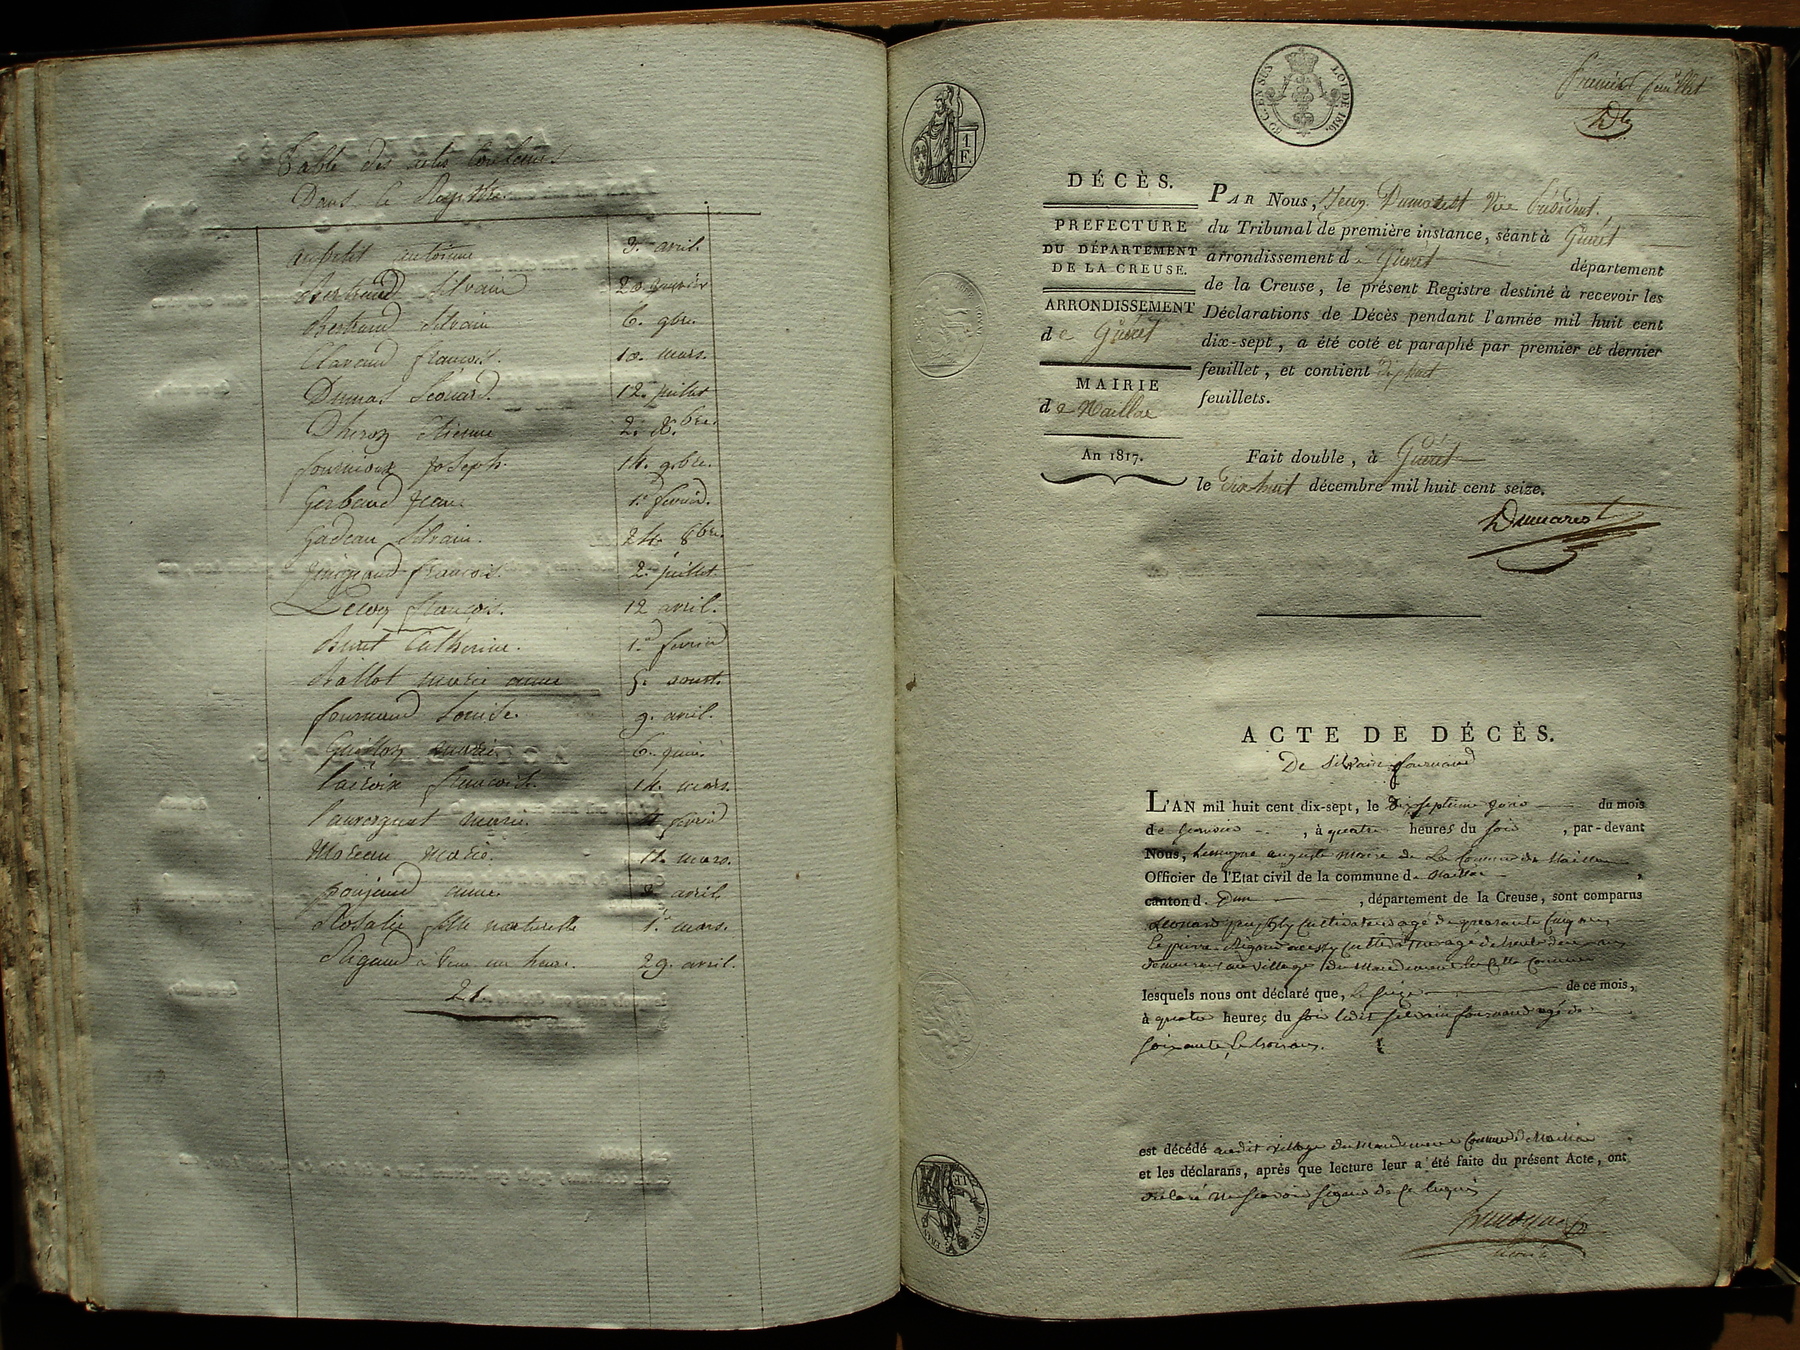 Table des actes contenus
Dans le Registre
aupetit antoinne 3. avril.
Bertrand Silvain 20 janvier
Bertrand Silvain 6. 9bre.
Clavaud françois. 10. mars.
Dumas Léonard. 12. juillet
Dheron Etienne 2. 8bre.
fournioux joseph. 14. 9bre.
Gerbaud jean 1er fevrier.
Gadeau Silvain. 24. 8bre.
françois. 2. juillet.
Lecoq françois. 12 avril.
Buret Catherine. 1er fevrier
Ballot marie anne 5. aoust.
fournaud Louise. 9. avril.
Guillon marie. 6. juin.
Lacroix françoise. 14. mars.
marie. fevrier
Moreau marie. 11. mars.
poujaud anne. 2 avril
Rosalie fille naturelle 1er mars.
Rigaud a vécu une heure. 29. avril.
21.
80 C. EN SUS
LOI DE 1816.
Premier feuillet
1 F.
DÉCÈS.
PREFECTURE
DU DÉPARTEMENT
DE LA CREUSE.
ARRONDISSEMENT
de Guéret
MAIRIE
de Naillac
An 1817.
PAR Nous, Jean Dumarest Vice Président
du Tribunal de première instance, séant à Guéret
arrondissement de Guéret département
de la Creuse, le présent Registre destiné à recevoir les
Déclarations de Décès pendant l'année mil huit cent
dix-sept, a été coté et paraphé par premier et dernier
feuillet, et contient dix huit
feuillets.
Fait double, à Guéret
le dix huit décembre mil huit cent seize.
Dumarest
ACTE DE DÉCÈS.
De Silvain fournaud
L'AN mil huit cent dix-sept, le dix septieme jour du mois
de janvier, à quatre heures du soir, par-devant
Nous, auguste maire de La Commune de Naillac
Officier de l'Etat civil de la commune de Naillac,
canton d. Dun, département de la Creuse, sont comparus
Leonard cultivateur agé de quarante cinq ans
Et pierre Rigaud cultivateur agé de trente deux ans
demeurant au village de cette Commune
lesquels nous ont déclaré que, le seize de ce mois,
à quatre heures du soir ledit silvain fournaud agé de
soixante et trois ans.
est décédé audit village Commune de Naillac
et les déclarans, après que lecture leur a été faite du présent Acte, ont
déclaré ne scavoir signer de ce enquis